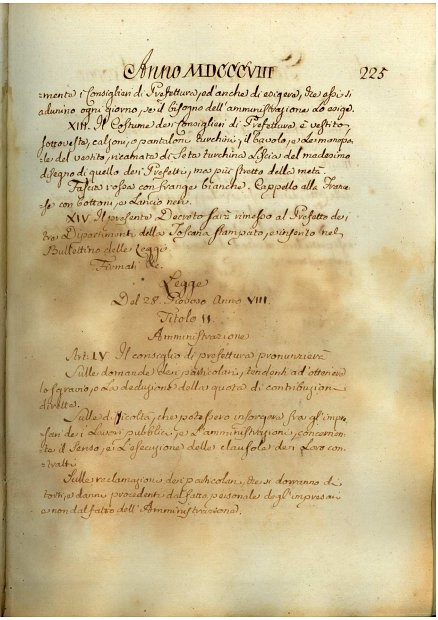 Anno MDCCCVIII 225
=mente i Consiglieri di Prefettura, ed anche di esigere, che essi si
adunino ogni giorno, se il bisogno dell'amministrazione lo esige.
XIII. Il Costume dei Consiglieri di Prefettura è vestito,
sottoveste, calzoni, o pantaloni turchini, il bavolo, e le
del vestito, ricamate di Seta turchina liscia del medesimo
disegno di quello dei Prefetti, ma più stretto della metà.
Fascia rossa con frange bianche. Cappello alla Franze=
=se con bottoni, e laccio neri.
XIV. Il presente Decreto sarà rimesso al Prefetto dei
tre Dipartimenti della Toscana stampato, e inserito nel
Bullettino delle Leggi.
Firmati &c.
Legge
Del 28. Piovoso Anno VIII.
Titolo II.
Amministrazione
Art: LV. Il consiglio di prefettura pronunzierà
Sulle domande dei particolari, tendenti ad ottenere
lo sgravio, o la deduzione della quota di contribuzione
dirette.
Sulle dificoltà, che potessero insorgere fra gl'impre=
sari dei Lavori pubblici, e l'amministrazione, concernen=
te il senso, e l'esecuzione delle clausole dei loro con=
tratti
Sulle reclamazioni dei particolari, che si dorranno di
torti, e danni procedenti dal fatto, personale degl'impresari
e non dal fatto dell'Amministrazione.